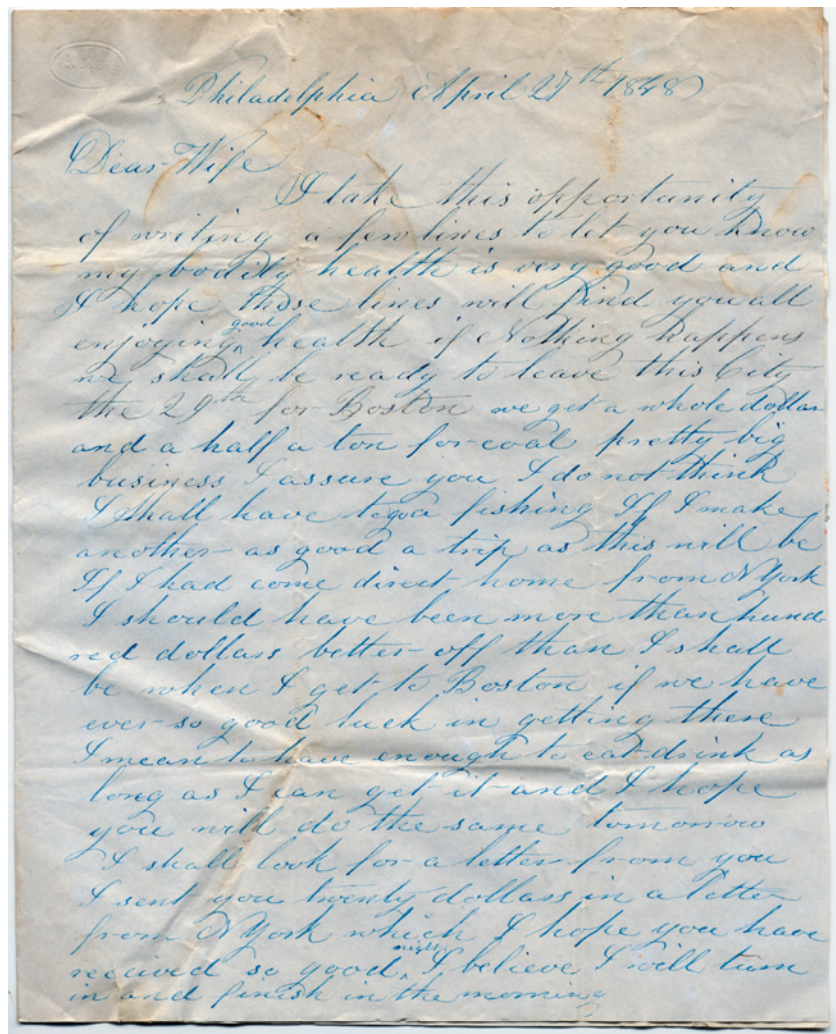 Philadelphia April 27th 1848
Dear Wife
I take this opportunity
of writing a few lines to let you know
my bodily health is very good and
I hope these lines will find you all
enjoying good health if Nothing happens
we shall be ready to leave this City
the 29th for Boston we get a whole dollar
and a half a ton for coal pretty big
business I assure you I do not think
I shall have to go a fishing If I make
another as good a trip as this will be
If I had come direct home from N York
I should have been more than hund
red dollars better off than I shall
be when I get to Boston if we have
ever so good luck in getting there
I mean to have enough to eat drink as
long as I can get it and I hope
you will do the same tomorrow
I shall look for a letter from you
I sent you twenty dollars in a letter
from N York which I hope you have
recived so good night I believe I will turn
in and finish in the morning